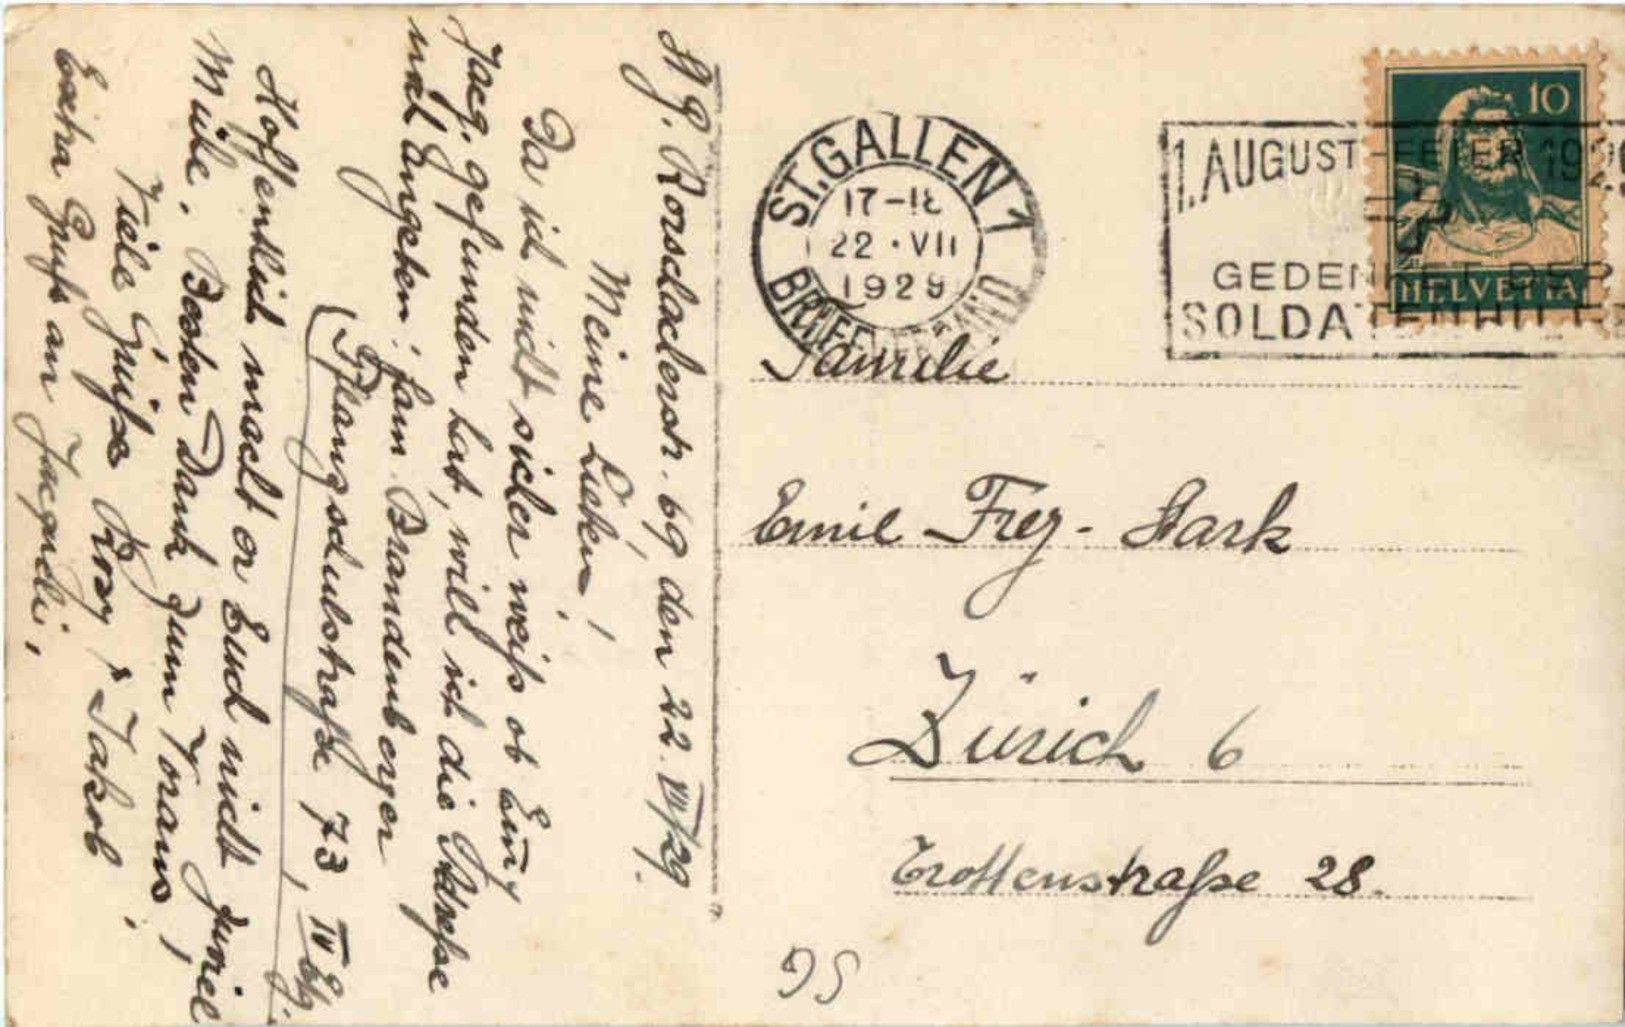 St. G. Rorschacherstr. 69, den 22. VII/29.
Meine Lieben!
Da ich nicht sicher weiss ob Emy
Jacq. gefunden hat, will ich die Adresse
noch angeben: fam. Brandenberger
(Pflangschulstraße 73, IV Etg.
Hoffentlich macht er Euch nicht zuviel
Mühe. Besten Dank zum Voraus!
Viele Grüße Rosy & Jakob
Extra Gruß an Jacqueli.
ST. GALLEN 1
17-18
22·VII
1929
BRIEFVERSAND
1. AUGUST-FEIER 1929
GEDENKET DER
SOLDATENHILFE
10
HELVETIA
Familie
Emil Frey-Stark
Zürich 6
Trottenstraße 28.